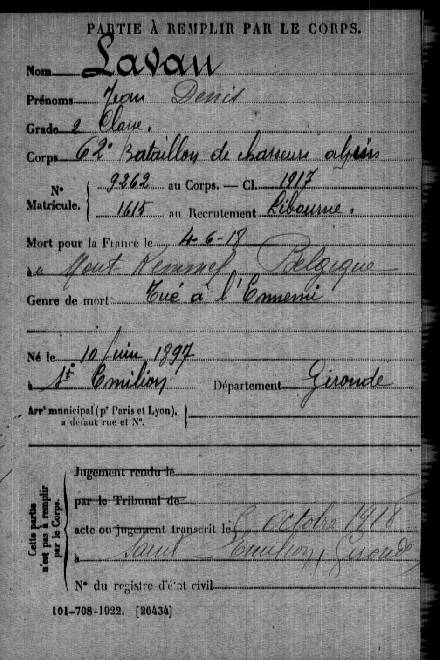 PARTIE À REMPLIR PAR LE CORPS.
Nom Lavau
Prénoms Jean Denis
Grade 2e Classe.
Corps 62e Bataillon de chasseurs alpins
N° Matricule. 9262 au Corps. — Cl. 1917
1615 au Recrutement Libourne.
Mort pour la France le 4-6-18
à Mont Kemmel Belgique
Genre de mort Tué à l'Ennemi
Né le 10 Juin 1897
à St Emilion Département Gironde
Arrt municipal (pr Paris et Lyon),
à défaut rue et N°.
Cette partie n'est pas à remplir par le Corps.
Jugement rendu le
par le Tribunal de
acte ou jugement transcrit le octobre 1918
à Saint Emilion, Gironde
N° du registre d'état civil
101-708-1922. [26434]